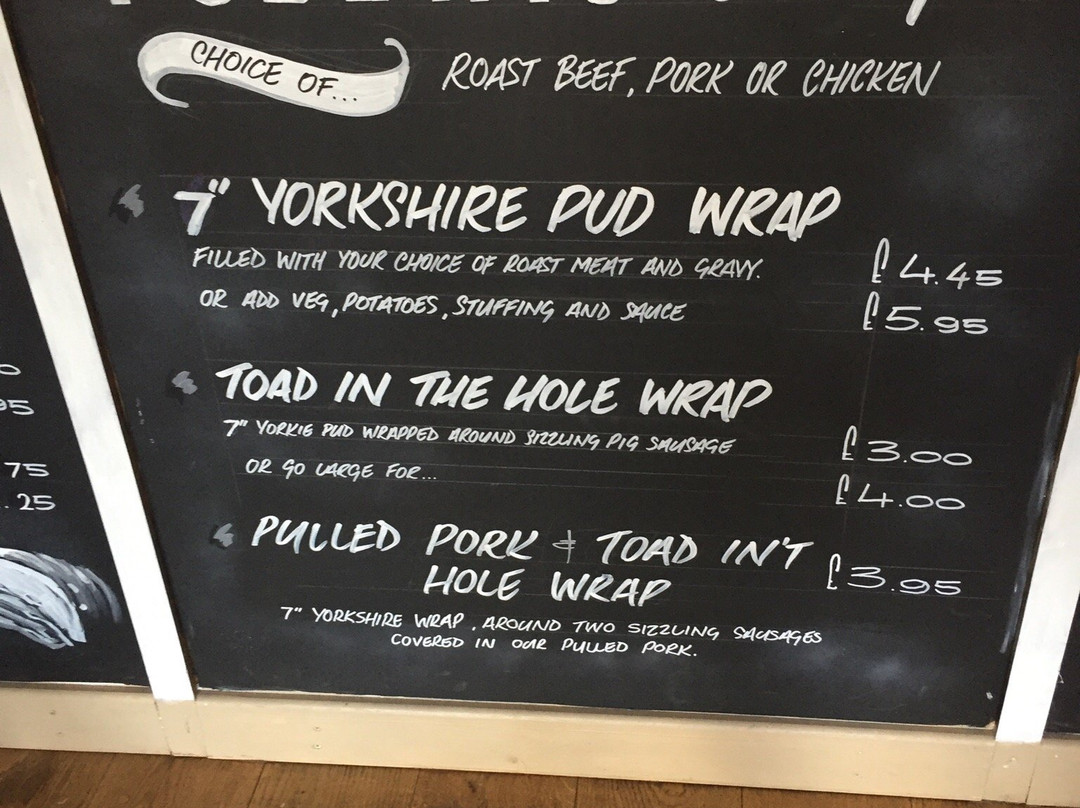 CHOICE OF...
ROAST BEEF, PORK OR CHICKEN
7" YORKSHIRE PUD WRAP
FILLED WITH YOUR CHOICE OF ROAST MEAT AND GRAVY. £4.45
OR ADD VEG, POTATOES, STUFFING AND SAUCE £5.95
TOAD IN THE HOLE WRAP
7" YORKIE PUD WRAPPED AROUND SIZZLING PIG SAUSAGE £3.00
OR GO LARGE FOR... £4.00
PULLED PORK & TOAD IN'T
HOLE WRAP £3.95
7" YORKSHIRE WRAP, AROUND TWO SIZZLING SAUSAGES
COVERED IN OUR PULLED PORK.